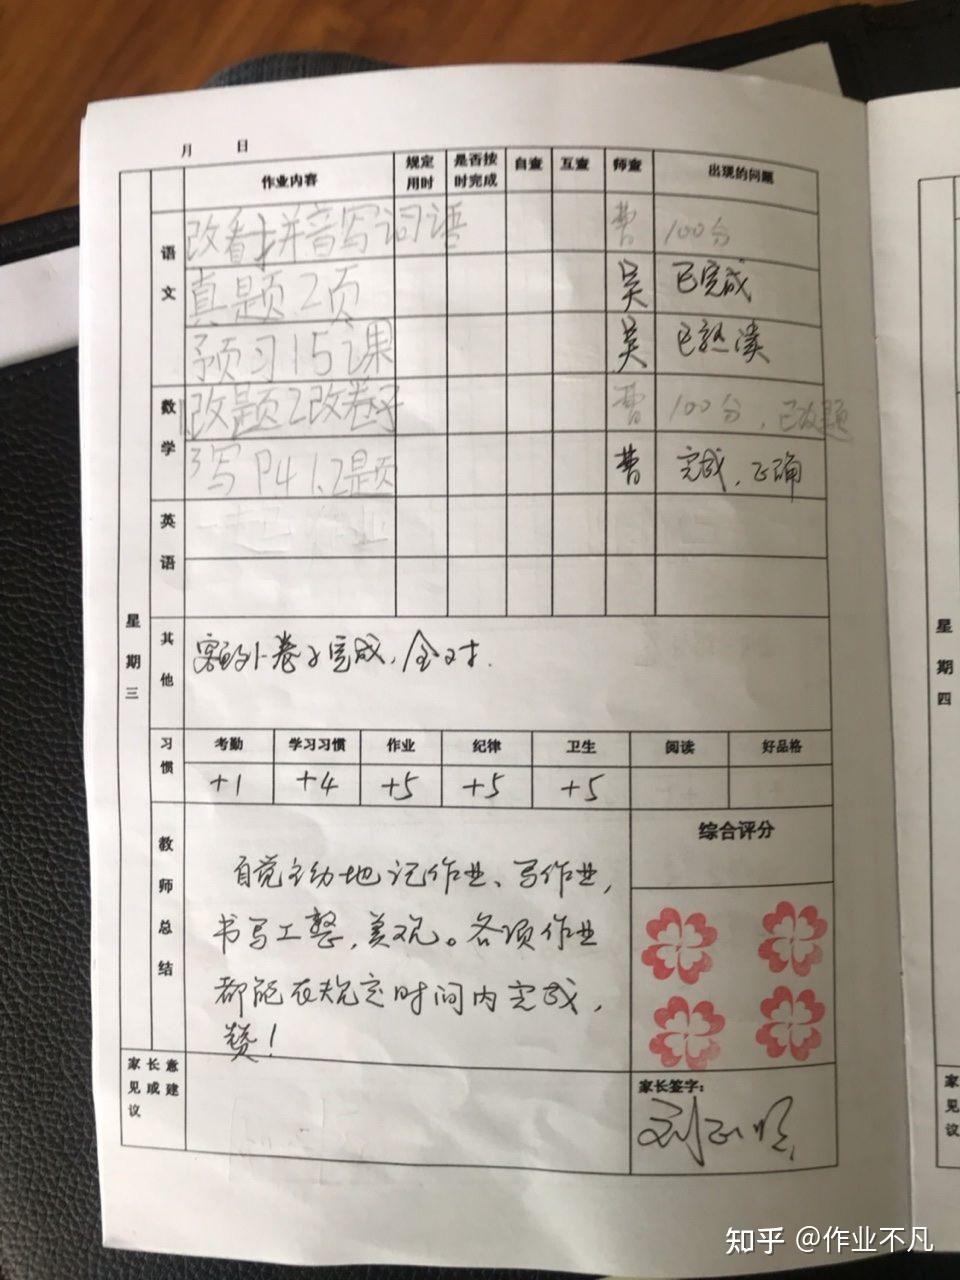 月 日
作业内容 规定用时 是否按时完成 自查 互查 师查 出现的问题
语文
改看拼音写词语 曹 100分
真题2页 吴 已完成
预习15课 吴 已熟读
数学
改题2改卷子 曹 100分，已改题
写P41.2题 曹 完成，正确
英语
星期三
其他
卷子完成，全对.
习惯
考勤 学习习惯 作业 纪律 卫生 阅读 好品格
+1 +4 +5 +5 +5
教师总结
综合评分
自觉主动地记作业、写作业，
书写工整，美观。各项作业
都能在规定时间内完成，
赞！
家长意见或建议
家长签字：
星期四
家
见
议
知乎 @作业不凡